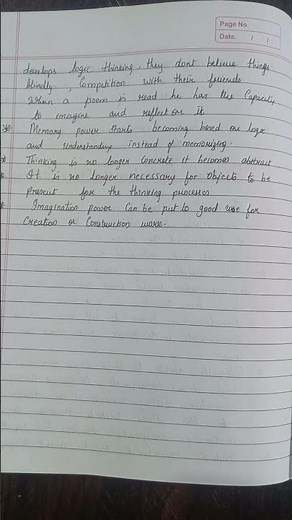 Page No.
Date. / /
develops logic thinking, they dont believe things
blindly, Competition with their friends
When a poem is read he has the Capacity
to imagine and reflect on it
Memory power starts becoming based on logic
and understanding instead of memorizing.
Thinking is no longer concrete it becomes abstract
It is no longer necessary for objects to be
present for the thinking process
Imagination power Can be put to good use for
Creation or Construction work.